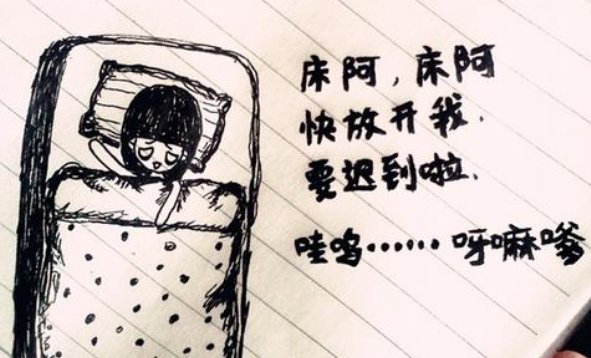 床阿，床阿
快放开我.
要迟到啦.
哇呜……呀嘛嗲